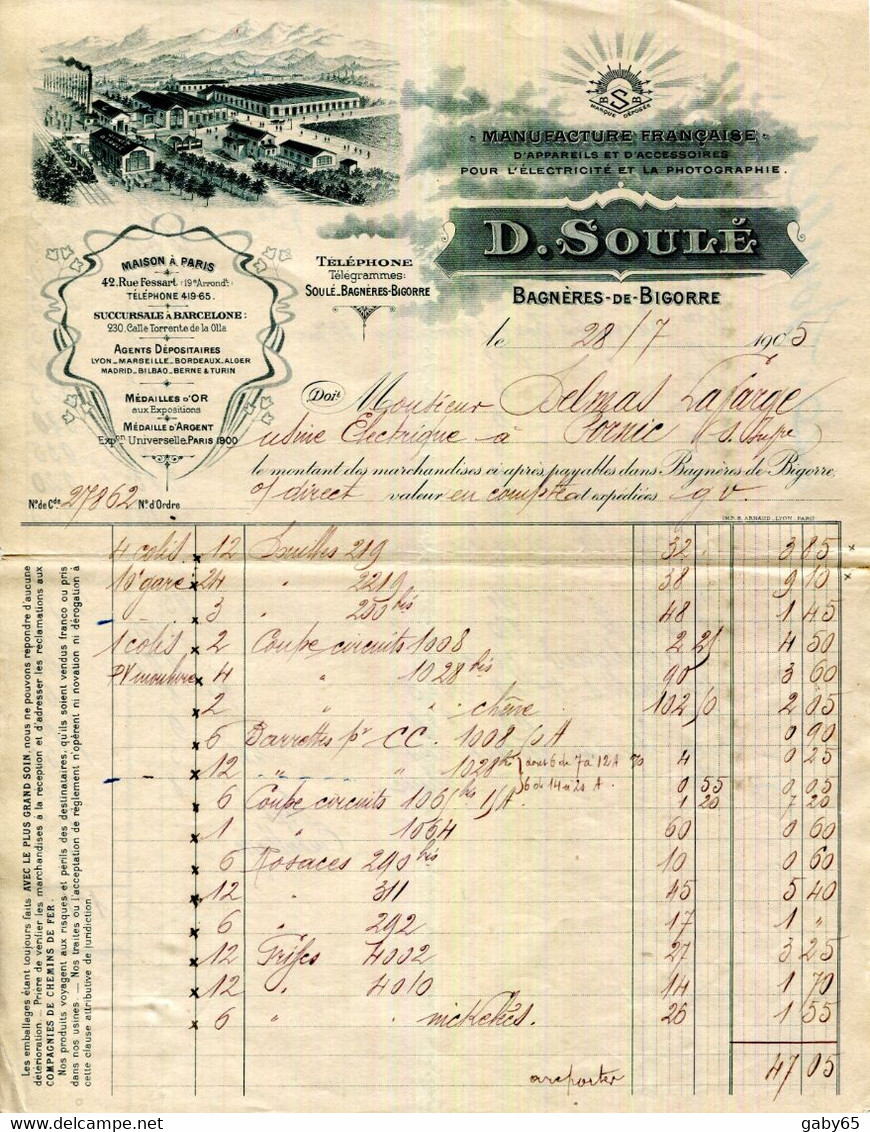 B S B
MARQUE DÉPOSÉE
MANUFACTURE FRANÇAISE
D'APPAREILS ET D'ACCESSOIRES
POUR L'ÉLECTRICITÉ ET LA PHOTOGRAPHIE.
D. SOULÉ
BAGNÈRES-DE-BIGORRE
MAISON À PARIS
42, Rue Fessart (19e Arrondt)
TÉLÉPHONE 419-65.
SUCCURSALE À BARCELONE:
230, Calle Torrente de la Olla
AGENTS DÉPOSITAIRES
LYON_MARSEILLE_BORDEAUX_ALGER
MADRID_BILBAO_BERNE & TURIN
MÉDAILLES D'OR
aux Expositions
MÉDAILLE D'ARGENT
Expon Universelle, PARIS 1900
TÉLÉPHONE
Télégrammes:
SOULÉ_BAGNÈRES-BIGORRE
le 28/7 1905
Doit Monsieur Delmas Lafarge
usine Electrique à Pornic
le montant des marchandises ci-après, payables dans Bagnères-de-Bigorre,
direct valeur en compte et expédiées gv.
No de Cde 27862 No d'Ordre
IMP. B. ARNAUD_LYON_PARIS
4 colis x 12 Douilles 219 32 3 85
x 24 " 2219 38 9 10
x 3 " 250 bis 48 1 45
1 colis x 2 Coupe circuits 1008 2 25 4 50
x 4 " 1028 bis 90 3 60
x 2 " " 102 50 2 05
x 6 Barrettes pr CC. 1008 0 90
x 12 " " 1028 bis 6 de 7 à 12A 70 4 0 25
6 de 14 à 20 A. 0 55 0 05
x 6 Coupe circuits 1065 bis 15A. 1 20 7 20
x 1 " 1064 60 0 60
x 6 Rosaces 290 bis 10 0 60
x 12 " 311 45 5 40
x 6 " 292 17 1 "
x 12 Griffes 4002 27 3 25
x 12 " 4010 14 1 70
x 6 " " nickelés. 26 1 55
a reporter 47 05
Les emballages étant toujours faits AVEC LE PLUS GRAND SOIN, nous ne pouvons repondre d'aucune
détérioration. — Prière de vérifier les marchandises à la reception et d'adresser les reclamations aux
COMPAGNIES DE CHEMINS DE FER.
Nos produits voyagent aux risques et perils des destinataires, qu'ils soient vendus franco ou pris
dans nos usines. — Nos traites ou l'acceptation de règlement n'opèrent ni novation ni dérogation à
cette clause attributive de juridiction
gaby65